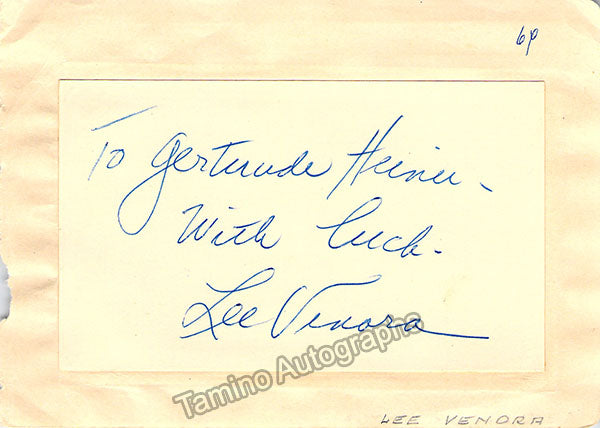 69
To Gertrude Heiner -
With luck -
Lee Venora
Tamino Autographs
LEE VENORA